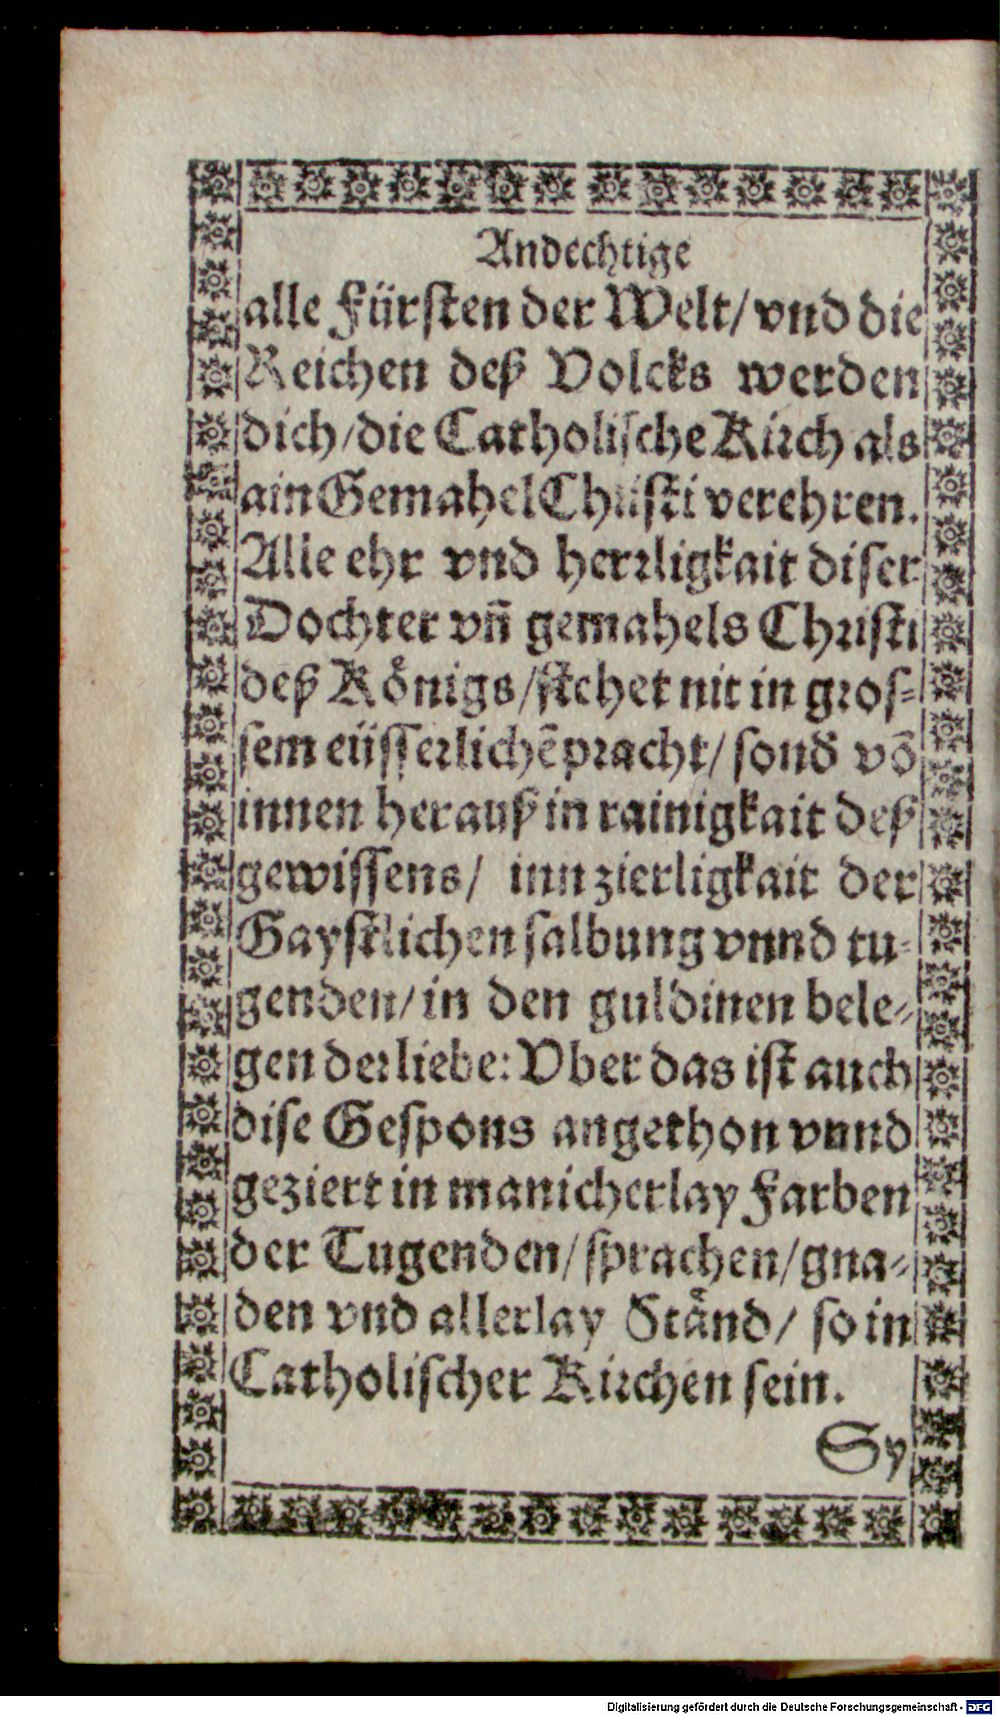 Andechtige
alle Fürsten der Welt/ vnd die
Reichen deß Volcks werden
dich/ die Catholische Kirch als
ain Gemahel Christi verehren.
Alle ehr vnd herrligkait diser
Dochter vn̄ gemahels Christi
deß Koͤnigs/ stehet nit in gros-
sem eüsserlichē pracht/ sond̄ vō
innen herauß in rainigkait deß
gewissens/ inn zierligkait der
Gaystlichen salbung vnnd tu-
genden/ in den guldinen bele-
gen der liebe: Vber das ist auch
dise Gespons angethon vnnd
geziert in manicherlay Farben
der Tugenden/ sprachen/ gna-
den vnd allerlay Staͤnd/ so in
Catholischer Kirchen sein.
Sy
Digitalisierung gefördert durch die Deutsche Forschungsgemeinschaft - DFG